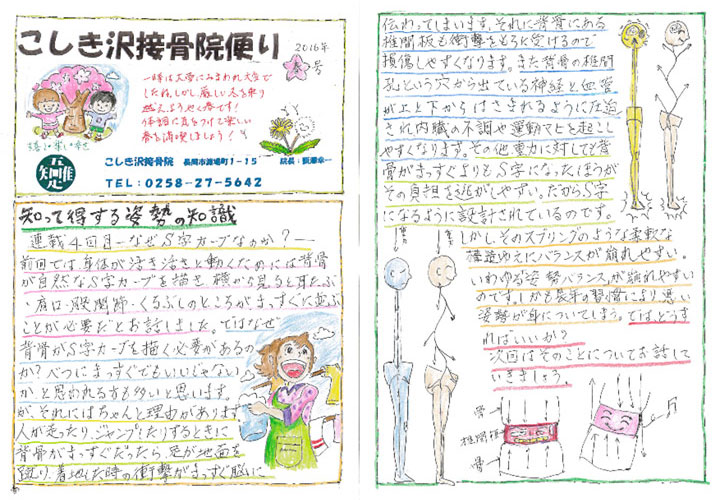 こしき沢接骨院便り
2016年
号
一時は大雪にみまわれ大変で
したね。しかし厳しい冬を乗り
越え、ようやく春です！
体調に気をつけて楽しい
春を満喫しましょう！
こしき沢接骨院 長岡市渡場町1-15 院長：
TEL：0258-27-5642
知って得する姿勢の知識
連載4回目ーなぜS字カーブなのか？ー
前回では身体が活き活きと動くためには背骨
が自然なS字カーブを描き横から見ると耳たぶ
・肩口・股関節・くるぶしのところがまっすぐに並ぶ
ことが必要だとお話しました。ではなぜ
背骨がS字カーブを描く必要があるの
か？べつにまっすぐでもいいじゃない
かと思われる方も多いと思います。
が、それにはちゃんと理由があります
人が走ったり、ジャンプしたりするときに
背骨がまっすぐだったら、足が地面を
蹴り、着地した時の衝撃がまっすぐ脳に
伝わってしまいます。それに背骨にある
椎間板も衝撃をもろに受けるので
損傷しやすくなります。また背骨の椎間
孔という穴から出ている神経と血管
が上と下からはさまれるように圧迫
され内臓の不調や運動マヒを起こし
やすくなります。その他重力に対しても背
骨がまっすぐよりもS字になったほうが
その負担を逃がしやすい。だからS字
になるように設計されているのです。
しかしそのスプリングのような柔軟な
構造ゆえにバランスが崩れやすい。
いわゆる姿勢バランスが崩れやすい
のです。しかも長年の習慣により悪い
姿勢が身についてしまう。ではどうす
ればいいか？
次回はそのことについてお話して
いきましょう。
骨
椎間板
骨